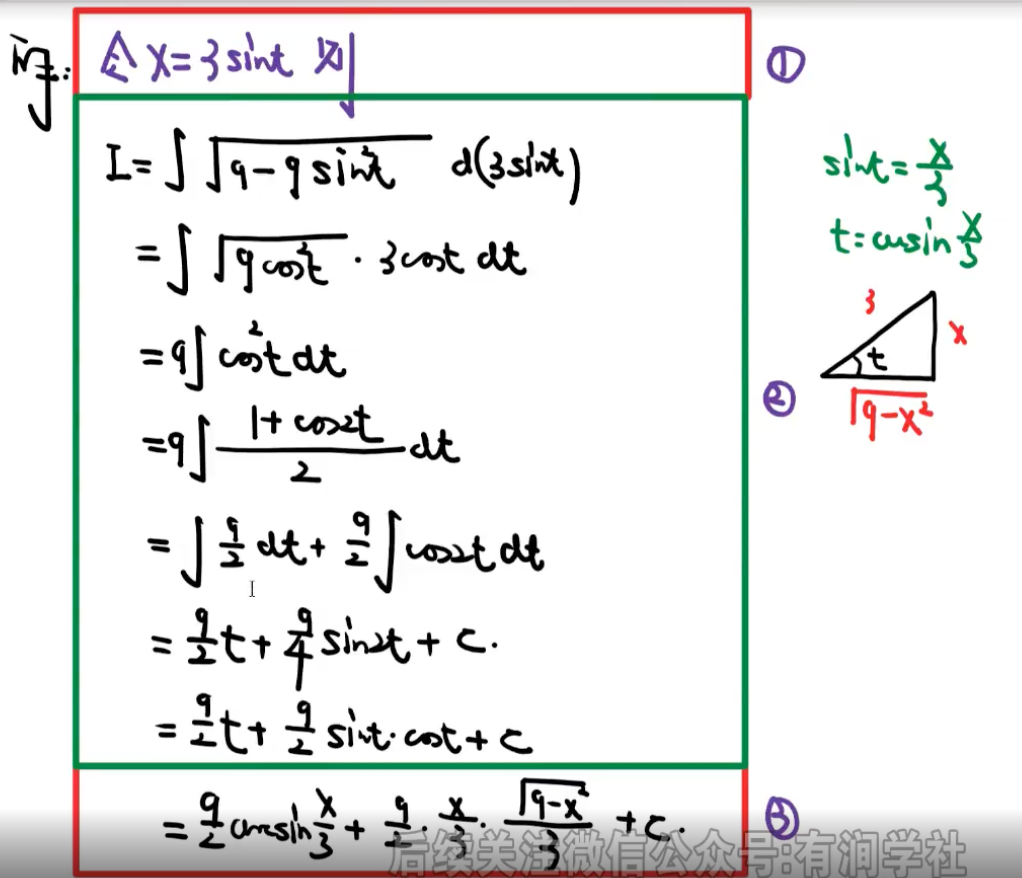 解:
令 x=3sint 则
①
I=∫√(9-9sin²t) d(3sint)
=∫√(9cos²t)·3cost dt
=9∫cos²t dt
=9∫(1+cos2t)/2 dt
=∫9/2 dt+9/2∫cos2t dt
=9/2t+9/4sin2t+C.
=9/2t+9/2sint·cost+C
sint=x/3
t=arcsin x/3
3
x
t
√(9-x²)
②
=9/2arcsin x/3+9/2·x/3·√(9-x²)/3+C.
③
后续关注微信公众号:有润学社